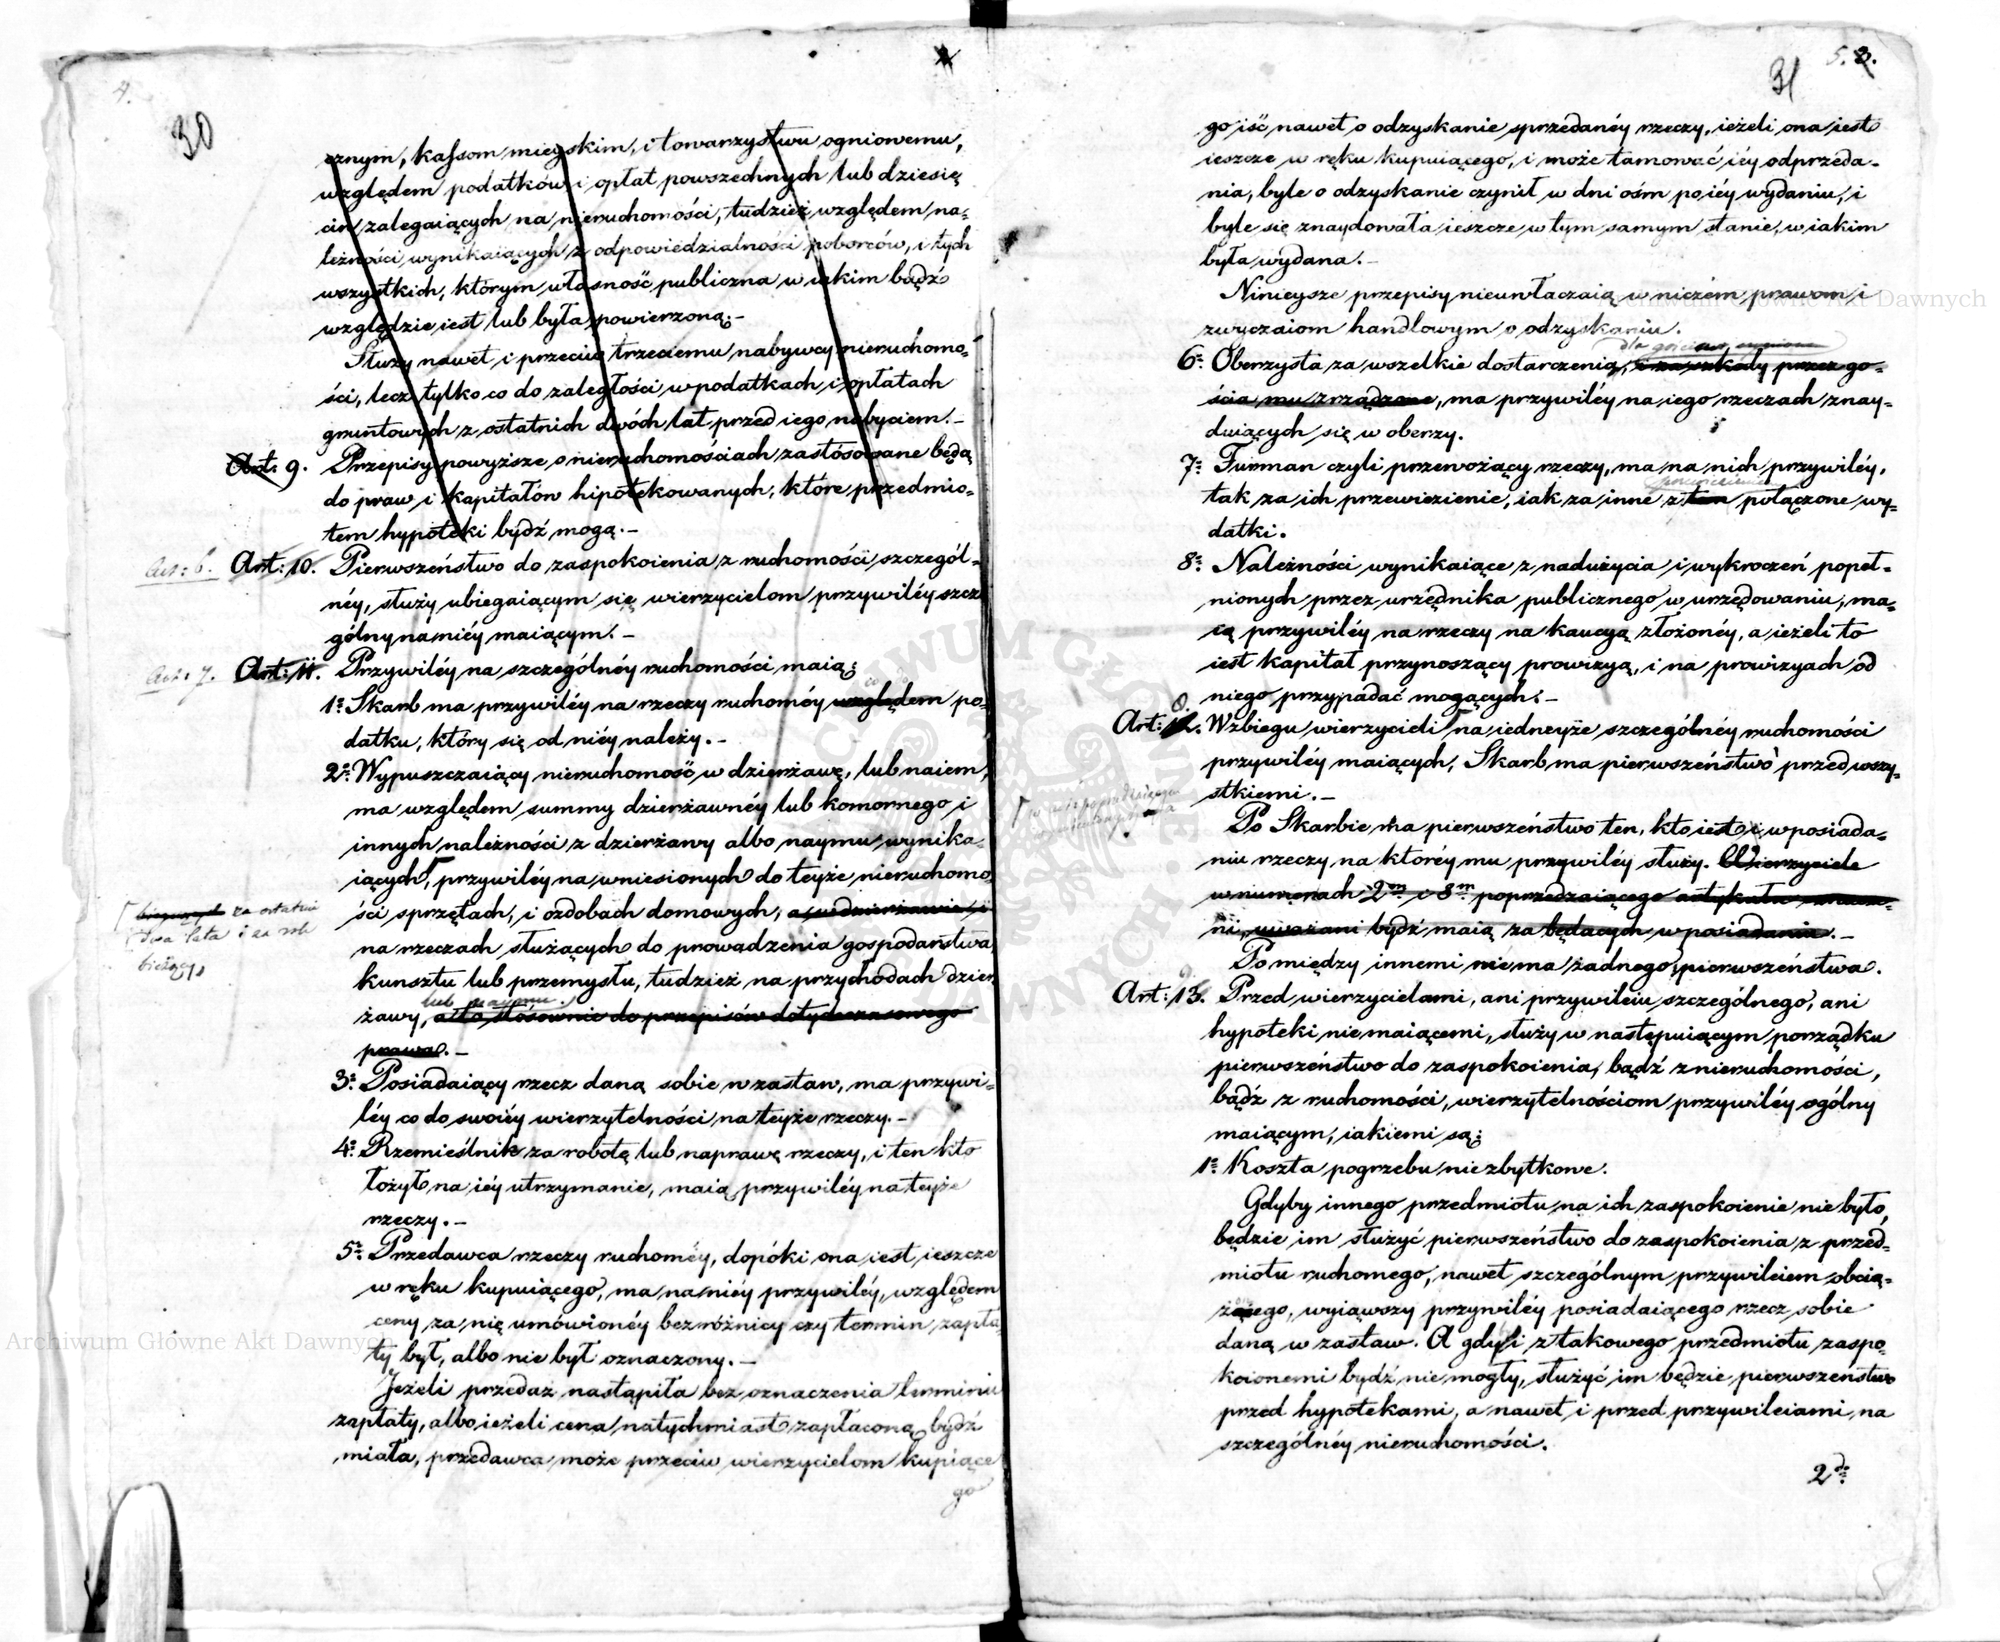 4.
30
cznym, kassom mieyskim, i towarzystwu ogniowemu,
względem podatków i opłat powszechnych lub dziesię
cin zalegaiących na nieruchomości, tudzież względem na-
leżności wynikaiących z odpowiedzialności poborców, i tych
wszystkich, którym własność publiczna w iakim bądź
względzie iest lub była powierzoną. –
Służy nawet i przeciw trzeciemu nabywcy nieruchomo-
ści, lecz tylko co do zaległości w podatkach i opłatach
gruntowych z ostatnich dwóch lat przed iego nabyciem. –
Art: 9. Przepisy powyższe o nieruchomościach zastósowane będą
do praw i kapitałów hipotekowanych, które przedmio-
tem hypoteki bydź mogą. –
Art: 6. Art: 10. Pierwszeństwo do zaspokoienia z ruchomości szczegól-
néy, służy ubiegaiącym się wierzycielom przywiléy szcze
gólny na niéy maiącym. –
Art: 7. Art: 11. Przywiléy na szczególnéy ruchomości maią:
1º Skarb ma przywiléy na rzeczy ruchoméy względem po-
datku, który się od niéy należy. –
2º Wypuszczaiący nieruchomość w dzierżawę, lub naiem,
ma względem summy dzierżawnéy lub komornego i
innych należności z dzierżawy albo naymu wynika-
iących, przywiléy na wniesionych do teyże nieruchomo
bieżących za ostatnie
dwa lata i za rok
bieżący,
ści sprzętach, i ozdobach domowych, a w dzierżawie i
na rzeczach służących do prowadzenia gospodarstwa
kunsztu lub przemysłu, tudzież na przychodach dzier
lub naymu.
żawy, a to stósownie do przepisów dotychczasowego
prawa. –
3º Posiadaiący rzecz daną sobie w zastaw, ma przywi-
léy co do swoiéy wierzytelności na teyże rzeczy. –
4º Rzemieślnik za robotę lub naprawę rzeczy, i ten kto
łożył na iéy utrzymanie, maią przywiléy na teyże
rzeczy. –
5º Przedawca rzeczy ruchoméy, dopóki ona iest ieszcze
w ręku kupuiącego, ma na niéy przywiléy, względem
ceny za nię umówionéy bez różnicy czy termin zapła-
ty był, albo nie był oznaczony. –
Jeżeli przedaż nastąpiła bez oznaczenia terminu
zapłaty, albo ieżeli cena natychmiast zapłaconą bydź
miała, przedawca może przeciw wierzycielom kupiące
go
31
5.
go iść nawet o odzyskanie sprzedanéy rzeczy, ieżeli ona iest
ieszcze w ręku kupuiącego, i może tamować iéy odprzeda-
nia, byle o odzyskanie czynił w dni ośm po iéy wydaniu, i
byle się znaydowała ieszcze w tym samym stanie, w iakim
była wydana. –
Ninieysze przepisy nieuwłaczaią w niczem prawom i
zwyczaiom handlowym o odzyskaniu.
6º Oberzysta za wszelkie dostarczenia, i za szkody przez go-
ścia mu zrządzone, ma przywiléy na iego rzeczach znay-
duiących się w oberzy.
7º Furman czyli przewożący rzeczy, ma na nich przywiléy,
tak za ich przewiezienie, iak za inne z tem połączone wy-
datki.
8º Należności wynikaiące z nadużycia i wykroczeń popeł-
nionych przez urzędnika publicznego w urzędowaniu, ma-
ią przywiléy na rzeczy na kaucyą złożonéy, a ieżeli to
iest kapitał przynoszący prowizyą, i na prowizyach od
niego przypadać mogących. –
Art: 12. W zbiegu wierzycieli na iedneyże szczególnéy ruchomości
przywiléy maiących, Skarb ma pierwszeństwo przed wszy-
stkiemi. –
Po Skarbie ma pierwszeństwo ten, kto iest w posiada-
niu rzeczy na któréy mu przywiléy służy. Wierzyciele
w numerach 2m i 8m poprzedzaiącego artykułu
ni, uważani bydź maią za będących w posiadaniu. –
Pomiędzy innemi niema żadnego pierwszeństwa.
9.
Art: 13. Przed wierzycielami, ani przywileiu szczególnego, ani
hypoteki niemaiącemi, służy w następuiącym porządku
pierwszeństwo do zaspokoienia, bądź z nieruchomości,
bądź z ruchomości, wierzytelnościom przywiléy ogólny
maiącym, iakiemi są:
1º Koszta pogrzebu niezbytkowe.
Gdyby innego przedmiotu na ich zaspokoienie nie było,
będzie im służyć pierwszeństwo do zaspokoienia z przed-
miotu ruchomego, nawet szczególnym przywileiem obcią-
żonego, wyiąwszy przywiléy posiadaiącego rzecz sobie
daną w zastaw. A gdyby i z takowego przedmiotu zaspo-
koionemi bydź nie mogły, służyć im będzie pierwszeństwo
przed hypotekami, a nawet i przed przywileiami na
szczególnéy nieruchomości.
2do
Archiwum Główne Akt Dawnych
Archiwum Główne Akt Dawnych